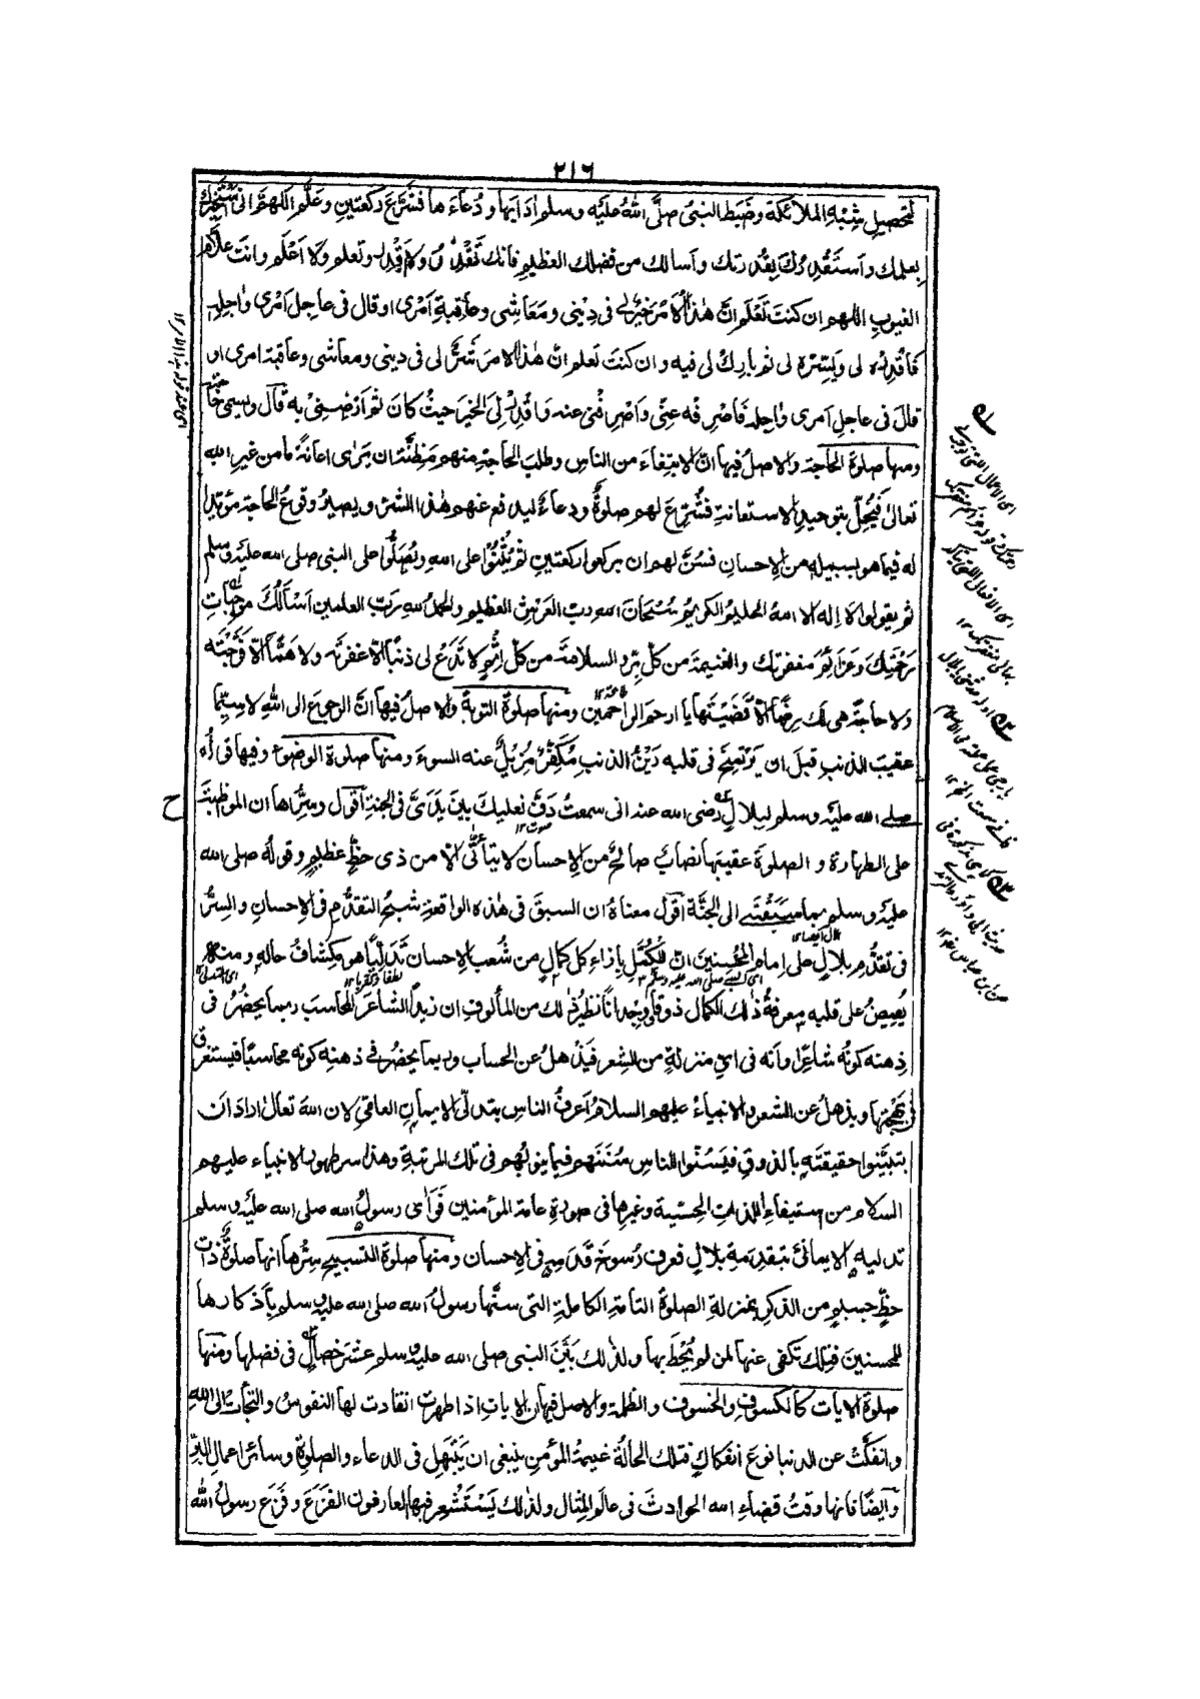 ٢١٦
لتحصيل شِبْهِ الملائكة وضَبَط النبىُ صلَّى اللهُ عليَه وسلم اٰدابها ودُعاءَها فشَرَعَ ركعتينِ وعَلَّم اللهم انى استخيرك
بعلمك واَستَقْدِرُكَ بِقُدرتك واَسالك من فضلك العظيمِ فانك تَقْدِرُ ولا اَقْدِرُ وتعلم ولا اَعْلَم وانتَ علَّام
الغيوبِ اللهم ان كنتَ تَعْلَم انَّ هٰذا الاَمْرَ خيرٌ لى فى دِينى ومَعَاشِى وعاقِبةِ اَمْرِى او قال فى عاجل اَمْرِى واٰجِلِهٖ
فاقْدِرْه لى ويَسِّرْه لى ثم بارِكْ لى فيه وان كنتَ تعلم انَّ هٰذا الامرَ شَرٌّ لى فى دينى ومعاشى وعاقبة امرى او
قال فى عاجلِ اَمرى واٰجِلِه فاصْرِفْه عنِّى واصْرِفْنى عنه واقْدِرْ لِىَ الخيرَ حيثُ كانَ ثم اَرْضِنِىْ به قال ويسمى حاجته
ومنها صلوة الحاجة والاصلُ فيها انَّ الابتغاءَ من الناسِ وطلبَ الحاجةِ منهم مَظِنَّة ان يَرٰى اعانةً مَّا من غيرِ الله
تعالٰى فيُخِلَّ بتوحيدِ الاستعانةِ فشُرِعَ لهم صلوةٌ ودعاءٌ ليدفعَ عنهم هٰذا الشرّ ويصيرُ وقوعُ الحاجة مؤيدا
له فيما هو بسبيله من الاحسانِ فسُنَّ لهم ان يركعوا ركعتينِ ثم يُثْنُوْا على اللهِ ويُصَلُّوا على النبى صلى الله عليه وسلم
ثم يقولوا لا اِله الا اللهُ الحليمُ الكريمُ سُبْحَانَ الله ربِّ العَرشِ العظيم والحمدُ للهِ رَبِّ العلمين اَسْاَلُكَ موجِباتِ
رَحْمَتِكَ وعَزائِمَ مغفرتك والغنيمةَ من كلِّ بِرٍّ والسلامةَ من كلِّ اِثْمٍ لا تَدَعْ لى ذنباً الّا غفرتَه ولا هَمّاً اِلّا فَرَّجْتَه
ولا حاجةً هى لك رِضًا اِلَّا قَضَيْتَها يا ارحم الراحمين ومنها صلوة التوبة والاصلُ فيها انَّ الرجوعَ الى اللهِ لا سِيَّما
عقيبَ الذنبِ قبلَ ان يَرْتسِخَ فى قلبه رَيْنُ الذنبِ مُكَفِّرٌ مُزِيلٌ عنه السوءَ ومنها صلوة الوضوء وفيها قولُه
صلى الله عليَه وسلم لبلالٍ رضى الله عنه انى سمعتُ دَفَّ نعليك بينَ يَدَىَّ فى الجنةِ اقول وسِرُّها ان المواظبةَ
على الطهارة والصلوةَ عقيبَها نصابٌ صالحٌ من الاحسان لا يتأتّٰى الّا من ذى حظٍّ عظيمٍ وقوله صلى الله
عليَه وسلم بما سبَقْتَنِى الى الجنَّة اقول معناهُ ان السبقَ فى هٰذه الواقعةِ شبحُ التقدُّمِ فى الاحسانِ والسِرُّ
فى تقدُّمِ بلالٍ على اِمامِ المُحْسِنينَ انّ للكُمَّلِ بازاءِ كل كمالٍ من شُعبِ الاحسان تَدَلِّيًا هو مِكشافُ حالِه ومنه
يُفيضُ على قلبه معرفةُ ذٰلك الكمال ذوقاً ووِجداناً نظيرُ ذٰلك من المألوف ان زيداً الشاعرَ المحاسبَ ربما يحضُرُ فى
ذهنه كونُه شاعِرًا وانه فى اى منزلةٍ من الشِعر فيَذْهلُ عن الحساب وربما يحضُر فى ذهنِه كونه محاسبًا فيستغرق
فى بَهْجَتِها ويذهلُ عن الشعر والانبياءُ عليهم السلامُ اَعرفُ الناس بتدلّى الايمانِ العامّىِّ لان اللهَ تعالٰى اراد ان
يتبيَّنوا حقيقتَه بالذوقِ فيَسُنّوا للناس سُنَنَهم فيما ينوبُهم فى تلك المرتبةِ وهٰذا سر ظهورِ الانبياء عليهم
السلام من استيفاءِ اللذاتِ الحِسّية وغيرِها فى صورةِ عامة المؤمنين فَرَاٰى رسولُ الله صلى الله عليَه وسلم
تدليَه الايمانىَّ بتقدمةِ بلالٍ فعرف رُسوخَ قَدَمِه فى الاحسان ومنها صلوة التسبيح سِرُّها انها صلوةٌ ذات
حظٍّ جسيمٍ من الذكرِ بمنزلةِ الصلوة التامة الكاملةِ التى سنَّها رسولُ الله صلى الله عليه وسلم باَذكارها
للمحسنينَ فتلك تكفى عنها لمن لم يُحِطْ بها ولذٰلك بَيَّن النبى صلى الله عليه وسلم عشرَ خصالٍ فى فضلها ومنها
صلوة الاٰيات كالكسوفِ والخسوف والظلمة والاصل فيها ان الاٰياتِ اذا ظهرت انقادت لها النفوسُ والتجأت الى اللهِ
وانفكّتْ عن الدنيا نوعَ انفكاكٍ فتلك الحالةُ غنيمةُ المؤمنِ ينبغى ان يَبْتَهِلَ فى الدعاء والصلوةِ وسائر اعمال البِرِّ
وايضًا فانها وقتُ قضاءِ الله الحوادثَ فى عالَمِ المِثال ولذٰلك يَسْتَشْعِر فيها العارفون الفزَعَ وفَزِعَ رسولُ الله